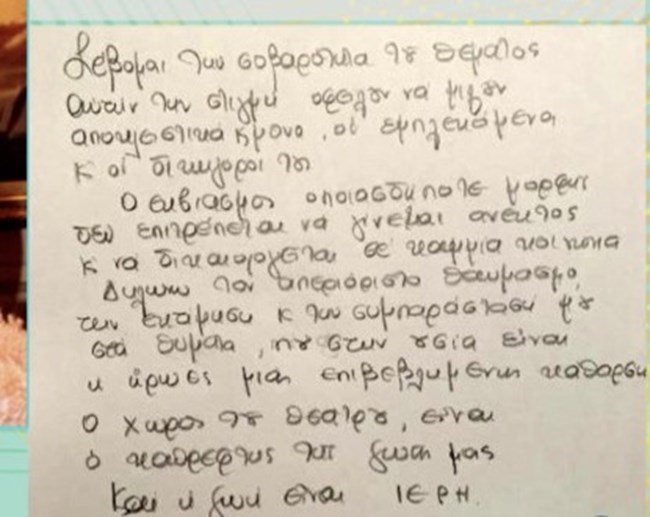 Σέβομαι την σοβαρότητα τȣ θέματος
αυτήν την στιγμή οφείλουν να μιλήσουν
αποκλειστικά κ μόνο, οι εμπλεκόμενοι
κ οι δικηγόροι τȣς
Ο εκβιασμός οποιασδήποτε μορφής
δεν επιτρέπεται να γίνεται ανεκτός
κ να δικαιολογείται σε καμμία κοινωνία
Δηλώνω τον απεριόριστο θαυμασμό,
την εκτίμηση κ την συμπαράσταση μȣ
στα θύματα, πȣ στην ȣσία είναι
οι ήρωες μιας επιβεβλημένης κάθαρσης
Ο χώρος τȣ θεάτρȣ, είναι
ο καθρέφτης της ζωής μας
Και η ζωή είναι ΙΕΡΗ.